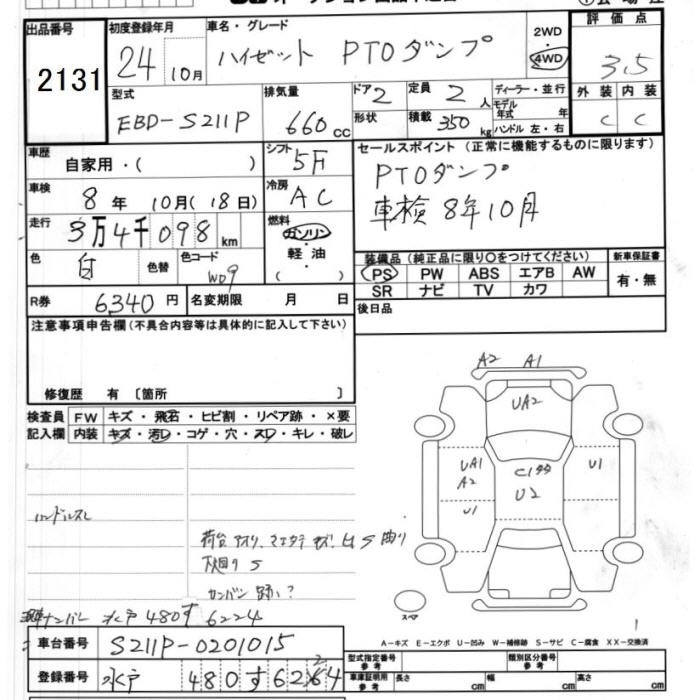 出品番号 初度登録年月 車名・グレード 2WD 評価点
2131 24 10月 ハイゼット PTOダンプ 4WD 3.5
型式 排気量 ドア 2 定員 2人 ディーラー・並行 外装 内装
EBD-S211P 660cc 形状 積載 350kg モデル年式 年 ハンドル 左・右 C C
車歴 自家用・( ) シフト 5F セールスポイント (正常に機能するものに限ります)
車検 8年 10月(18日) 冷房 AC PTOダンプ
走行 3万4千098km 燃料 ガソリン 車検8年10月
色 白 色替 色コード W09 軽油 ( )
装備品(純正品に限り○をつけてください) 新車保証書
PS PW ABS エアB AW 有・無
SR ナビ TV カワ
R券 6340円 名変期限 月 日 後日品
注意事項申告欄(不具合内容等は具体的に記入して下さい)
修復歴 有 〔箇所 〕
検査員 FW キズ・飛石・ヒビ割・リペア跡・×要
記入欄 内装 キズ・汚レ・コゲ・穴・スレ・キレ・破レ
A2 A1
UA2
UA1 A2
C1
U2
U1
U1
ハンドルスレ
荷台 アオリ、
下回り S
スペア
水戸 480 す 6224
A-キズ E-エクボ U-凹み W-補修跡 S-サビ C-腐食 XX-交換済
車台番号 S211P-0201015
型式指定番号 参考 類別区分番号 参考
登録番号 水戸 480す62 2 64
車庫証明用 参考 長さ cm 幅 cm 高さ cm